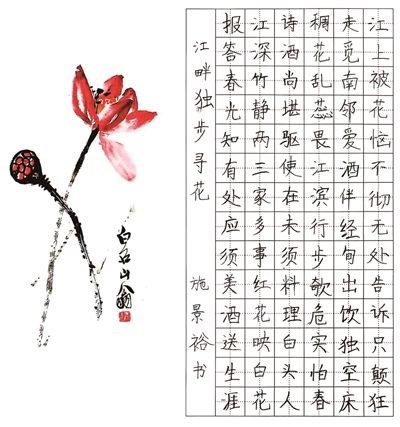 江上被花恼不彻无处告诉只颠狂
走觅南邻爱酒伴经旬出饮独空床
稠花乱蕊畏江滨行步欹危实怕春
诗酒尚堪驱使在未须料理白头人
江深竹静两三家多事红花映白花
报答春光知有处应须美酒送生涯
江畔独步寻花 施景裕书
白石山翁